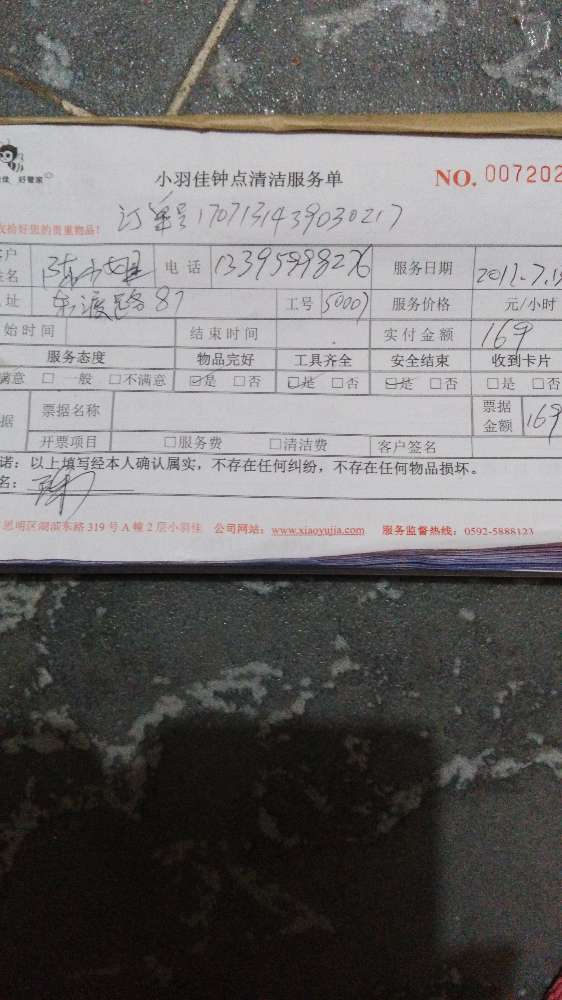 佳 好管家
小羽佳钟点清洁服务单
NO. 007202
收拾好您的贵重物品!
订单号170713143903​0217
户 签名 陈小姐 电 话 13395998276 服务日期 2017.7.1
址 东渡路87 工号 50007 服务价格 元/小时
始时间 结束时间 实付金额 169
服务态度 物品完好 工具齐全 安全结束 收到卡片
满意 □ 一般 □不满意 ☑是 □否 ☑是 □否 ☑是 □否 □是 □否
据 票据名称 票据金额 169
开票项目 □服务费 □清洁费 客户签名
诺: 以上填写经本人确认属实,不存在任何纠纷,不存在任何物品损坏。
名: 陈
思明区湖滨东路 319 号 A 幢 2 层小羽佳 公司网站: www.xiaoyujia.com 服务监督热线: 0592-5888123